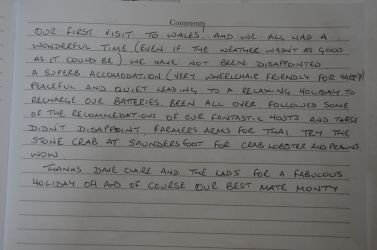 Comments
OUR FIRST VISIT TO WALES, AND WE ALL HAD A
WONDERFUL TIME (EVEN IF THE WEATHER WASN'T AS GOOD
AS IT COULD BE) WE HAVE NOT BEEN DISAPPOINTED
A SUPERB ACCOMODATION (VERY WHEELCHAIR FRIENDLY FOR
PEACEFUL AND QUIET LEADING TO A RELAXING HOLIDAY TO
RECHARGE OUR BATTERIES. BEEN ALL OVER FOLLOWED SOME
OF THE RECOMMEDATIONS OF OUR FANTASTIC HOSTS AND THESE
DIDN'T DISAPPOINT, FARMERS ARMS FOR THAI, TRY THE
STONE CRAB AT SAUNDERSFOOT FOR CRAB LOBSTER AND PRAWNS.
WOW
THANKS DAVE CLAIRE AND THE LADS FOR A FABULOUS
HOLIDAY OH AND OF COURSE OUR BEST MATE MONTY